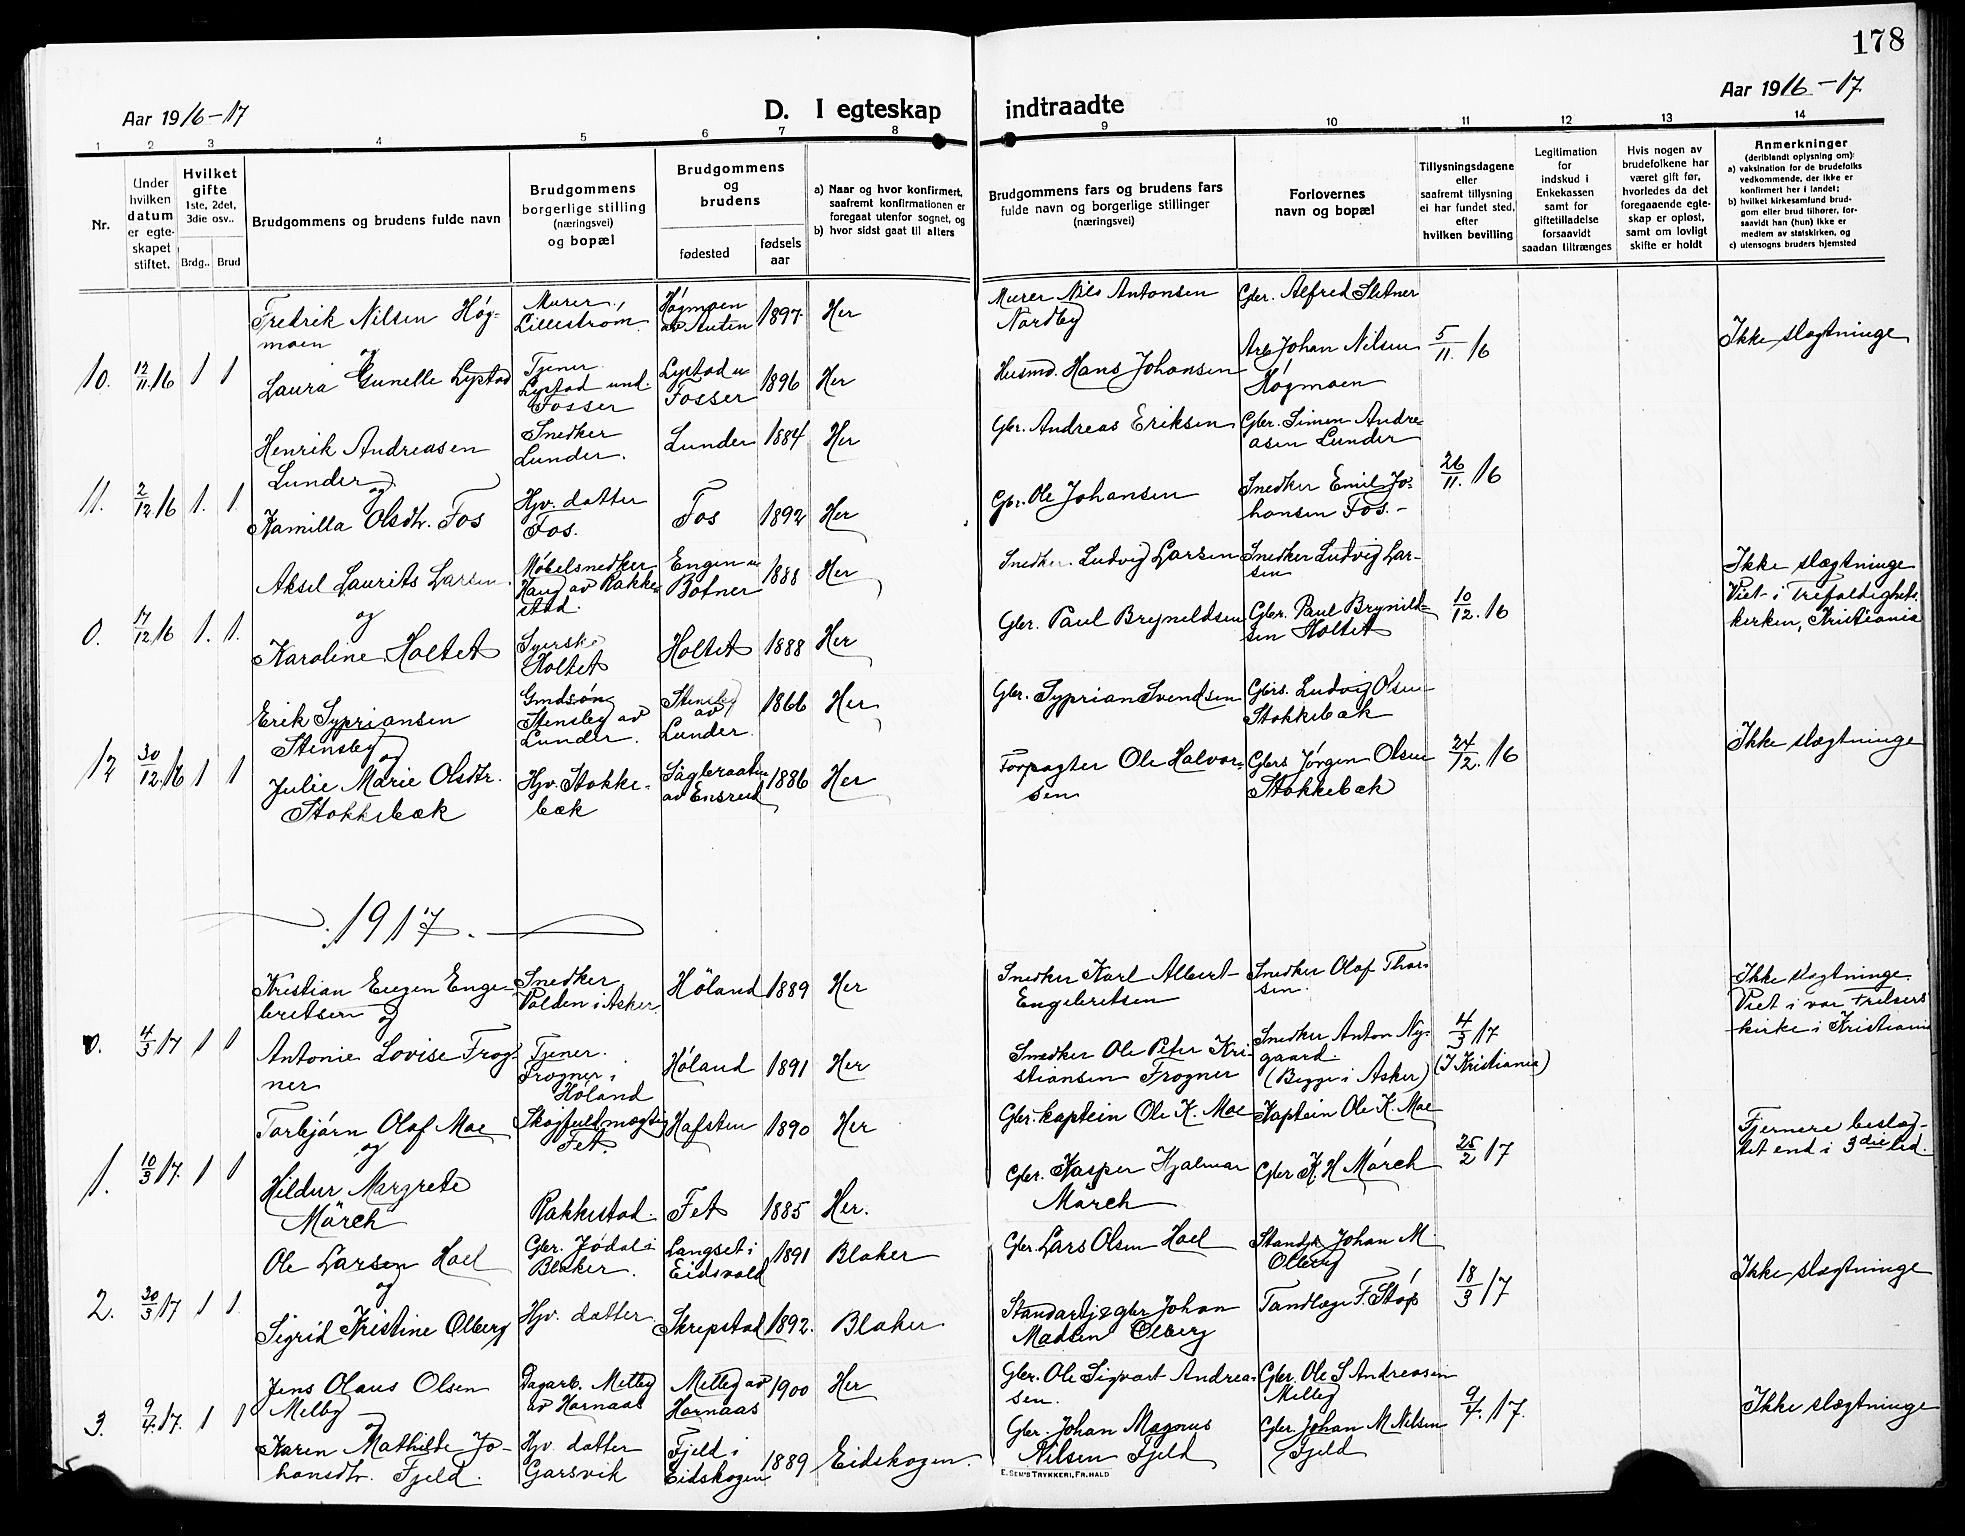 178
Aar 1916-17
D. I egteskap indtraadte
Aar 1916-17
1 2 3 4 5 6 7 8 9 10 11 12 13 14
Nr.
Under hvilken datum er egteskapet stiftet.
Hvilket gifte 1ste, 2det, 3die osv..
Brdg.. Brud
Brudgommens og brudens fulde navn
Brudgommens borgerlige stilling (næringsvei) og bopæl
Brudgommens og brudens
fødested
fødselsaar
a) Naar og hvor konfirmert, saafremt konfirmationen er foregaat utenfor sognet, og
b) hvor sidst gaat til alters
Brudgommens fars og brudens fars fulde navn og borgerlige stillinger (næringsvei)
Forlovernes navn og bopæl
Tillysningsdagene eller saafremt tillysning ei har fundet sted, efter hvilken bevilling
Legitimation for indskud i Enkekassen samt for giftetilladelse forsaavidt saadan tiltrænges
Hvis nogen av brudefolkene har været gift før, hvorledes da det foregaaende egteskap er opløst, samt om lovligt skifte er holdt
Anmerkninger (deriblandt oplysning om):
a) vaksination for de brudefolks vedkommende, der ikke er konfirmert her i landet;
b) hvilket kirkesamfund brudgom eller brud tilhører, forsaavidt han (hun) ikke er medlem av statskirken, og
c) utensogns bruders hjemsted
10. 12/11 16 1 1
Fredrik Nilsen Høgmoen
og
Laura Gunelle Lystad
Murer, Lillestrøm.
Tjener. Lystad und. Fosser
Høgmoen av Auten 1897 Her
Lystad u Fosser 1896 Her
Murer Nils Antonsen Nordby
Husmd. Hans Johansen
Gbr. Alfred Sletner
Arb Johan Nilsen Høgmoen
5/11. 16
Ikke slægtninge
11. 2/12 16 1. 1.
Henrik Andreasen Lunder
og
Kamilla Olsdtr. Fos
Snedker Lunder.
Hjv. datter Fos.
Lunder 1884 Her
Fos 1892 Her
Gbr. Andreas Eriksen
Gbr. Ole Johansen
Gbr. Simen Andreasen Lunder
Snedker Emil Johansen Fos.-
26/11. 16
0. 17/12 16 1. 1.
Aksel Laurits Larsen
og
Karoline Holtet
Møbelsnedker Haug av Rakkestad.
Syerske Holtet
Engen u Botner 1888 Her
Holtet 1888 Her
Snedker. Ludvig Larsen
Gbr. Paul Bryneldsen
Snedker Ludvig Larsen
Gbr. Paul Brynildsen Holtet
10/12. 16
Ikke slægtninge
Viet i Trefoldighets. kirken, Kristiania
12 30/12 16 1 1
Erik Syprianssen Stensby
og
Julie Marie Olsdtr. Stokkebæk
Gmdsøn Stensby av Lunder.
Hjv. Stokkebæk
Stensby av Lunder. 1866 Her
av Ensrud 1886 Her
Gbr. Syprian Svendsen
Forpagter Ole Halvorsen
Gbrs. Ludvig Olsen Stokkebæk
Gbrs Jørgen Olsen Stokkebæk
24/12. 16
Ikke slægtninge
1917.
0. 4/3 17 1 1
Kristian Eugen Engebretsen og
Antonie Lovise Frogner
Snedker Valden i Asker.
Tjener. Frogner i Høland
Höland 1889 Her
Høland 1891 Her
Snedker Karl Albert Engebretsen
Snedker Ole Peter Kristiansen Frogner
Snedker Olaf Thorsen.
Snedker Anton Nygaard. (Begge i Asker)
4/3 17 (I Kristiania)
Ikke slægtninge.
Viet i vor Frelsers kirke i Kristiania
1. 10/3 17. 1 1
Torbjørn Olaf Moe
og
Hildur Margrete Mörch
Skogfuldmægtig Fet.
Rakkestad.
Hafsten 1890 Her
Fet 1885 Her.
Gbr. kaptein Ole K. Moe
Gbr. Kasper Hjalmar Mörch
Kaptein Ole K. Moe
Gbr K. H Mörch
25/2 17
Fjernere beslægtet end i 3die led.
2. 30/3 17 1 1.
Ole Larsen Hoel
og
Sigrid Kristine Olberg
Gbr. Jødal i Blaker.
Hjv. datter
Langset i Eidsvold 1891 Blaker
Skrepstad 1892. Blaker
Gbr. Lars Olsen Hoel
Standartj & gbr Johan Madsen Olberg
Standj. Johan M. Olberg
Tandlæge F. Støp
18/3 17
Ikke slægtninge
3. 9/4. 17. 1 1
Jens Olaus Olsen Melby
og
Karen Mathilde Johansdtr. Fjeld.
Dagarb. Melby av Hornaas
Hjv. datter Garsvik
Melby av Hornaas 1900 Her
Fjeld i Eidskogen 1889 Eidskogen.
Gbr. Ole Sigvart Andreasen.
Gbr. Johan Magnus Nilsen Fjeld
Gbr. Ole S Andreasen Melby
Gbr Johan M Nilsen Fjeld
9/4. 17.
Ikke slægtninge
E. SEM'S TRYKKERI, FR.HALD